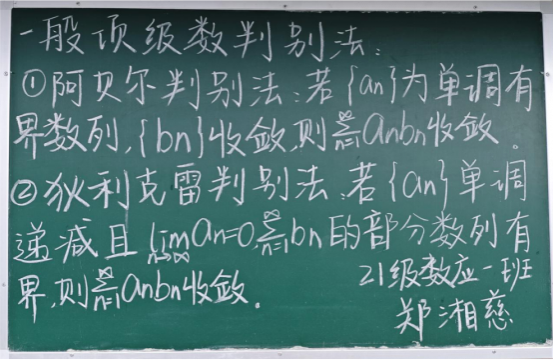 一般项级数判别法:
①阿贝尔判别法:若{an}为单调有
界数列,{bn}收敛,则∞∑n=1anbn收敛。
②狄利克雷判别法:若{an}单调
递减且limn→∞an=0,∞∑n=1bn的部分数列有
界,则∞∑n=1anbn收敛.
21级数应一班
郑湘慈